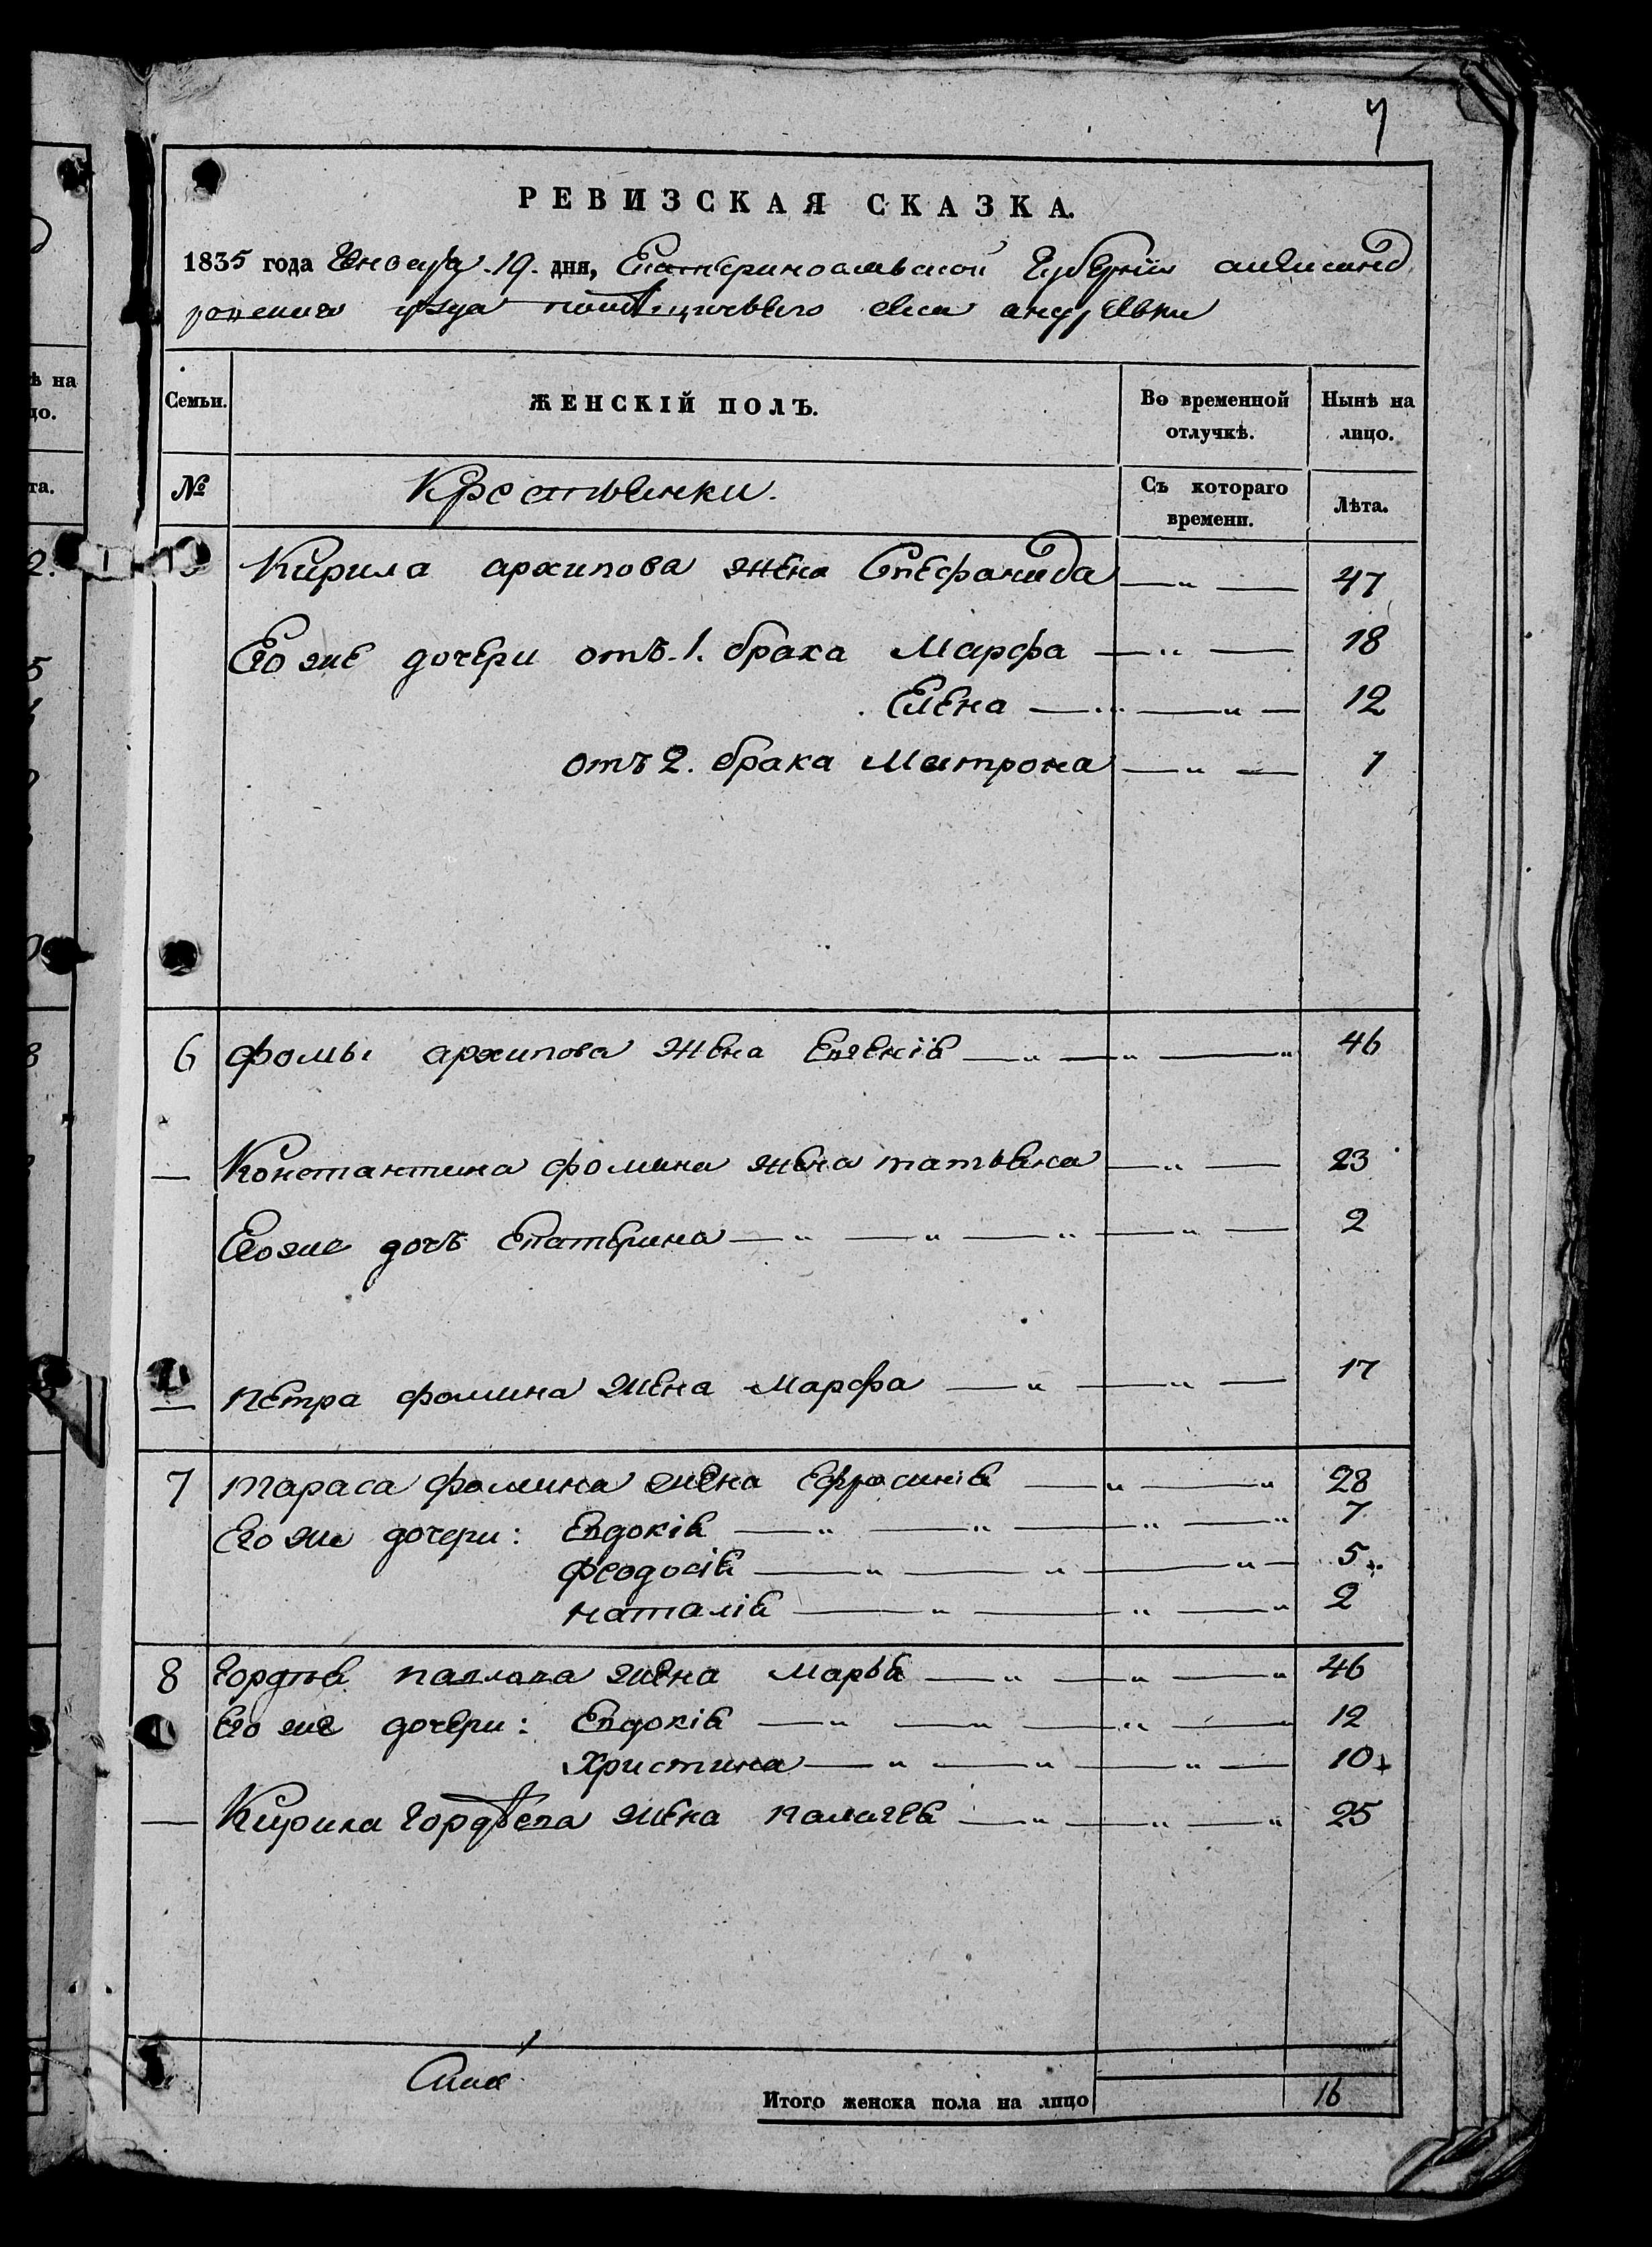 7
РЕВИЗСКАЯ СКАЗКА.
1835 года Генваря .19. дня, Екатеринославской Губернiи александ
ровского уѣзда помѣщичьего села андрѣевки
Семьи.
ЖЕНСКIЙ ПОЛЪ.
Во временной отлучкѣ.
Нынѣ на лицо.
№
Крестьянки.
Съ котораго времени.
Лѣта.
Кирила архипова жена Степанида — „ — 47
Его же дочери отъ .1. брака Марфа — „ — 18
Елена — „ — „ — 12
отъ 2. брака Матрона — „ — 1
6 фомы архипова жена Евгенiя — „ — „ — „ 46
— Константина фомина жена татьяна — „ — 23
Его же дочь Екатерина — „ — „ — „ — „ — 2
— петра фомина жена Марфа — „ — „ — 17
7 тараса фомина жена Ефросинiя — „ — „ 28
Его же дочери: Евдокiя — „ — „ — „ — „ 7
феодосiя — „ — „ — „ — 5
наталiя — „ — „ — „ 2
8 Гордѣя павлова жена Марья — „ — „ — „ 46
Его же дочери: Евдокiя — „ — „ — „ — „ 12
Христина — „ — „ — „ — 10
— Кирила Гордѣева жена палагея — „ — „ — „ 25
Итого женска пола на лицо 16
ѣ на
цо.
та.